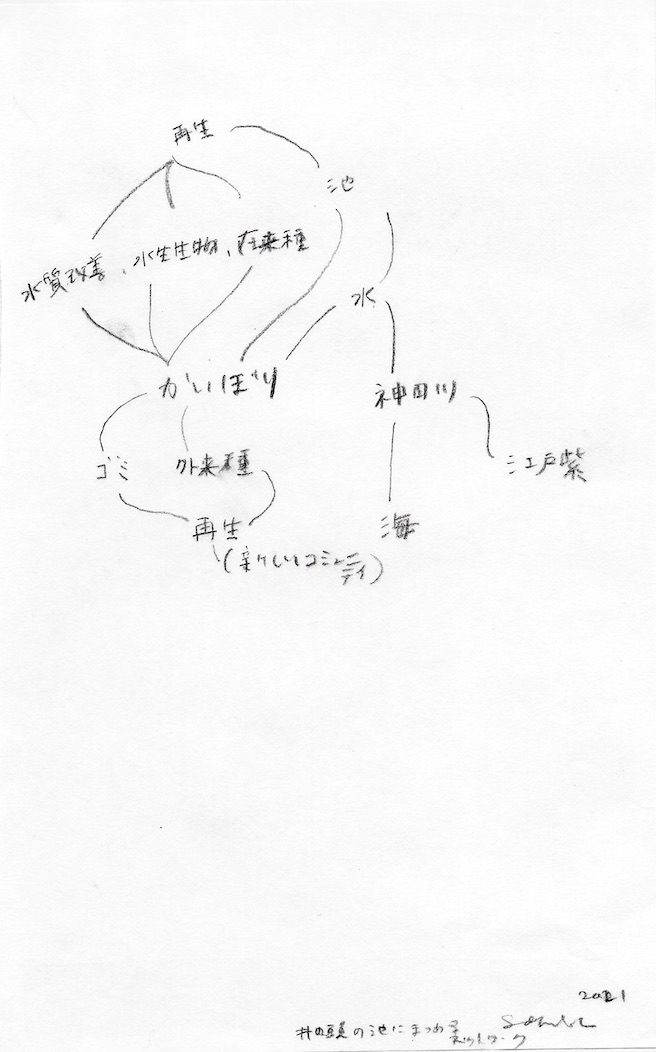 再生
池
水質改善、水生生物、在来種
水
かいぼり
神田川
ゴミ
外来種
江戸紫
再生
海
(新しいコミュニ
ティ)
2021
井の頭の池にまつわる
ネットワーク